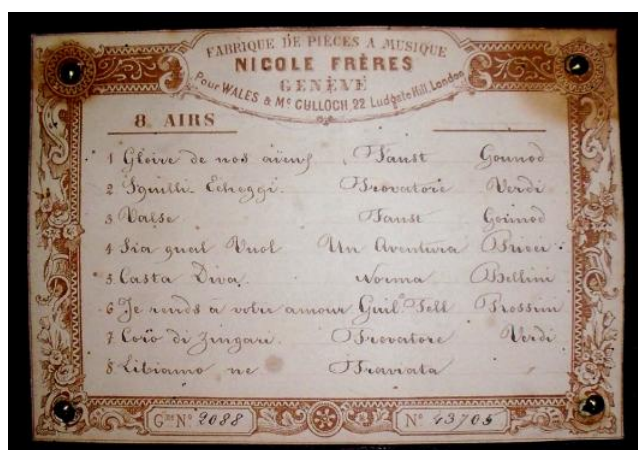 FABRIQUE DE PIÈCES A MUSIQUE
NICOLE FRÈRES
GENÈVE
Pour WALES & Mc CULLOCH, 22 Ludgate Hill, London
8 AIRS
1 Gloire de nos aïeux Faust Gounod
2 Squilli Echeggi Trovatore Verdi
3 Valse Faust Gounod
4 Sia qual Vuol Un Aventura Bucci
5 Casta Diva Norma Bellini
6 Je rends à votre amour Guil. Tell Rossini
7 Coro di Zingari Trovatore Verdi
8 Libiamo ne Traviata
Gme No 2088 No 43705